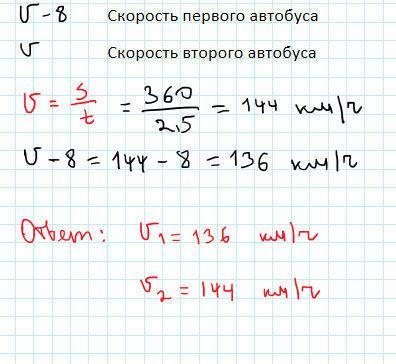 υ - 8 Скорость первого автобуса
υ Скорость второго автобуса
υ = s/t = 360/2,5 = 144 км/ч
υ - 8 = 144 - 8 = 136 км/ч
Ответ: υ₁ = 136 км/ч
υ₂ = 144 км/ч